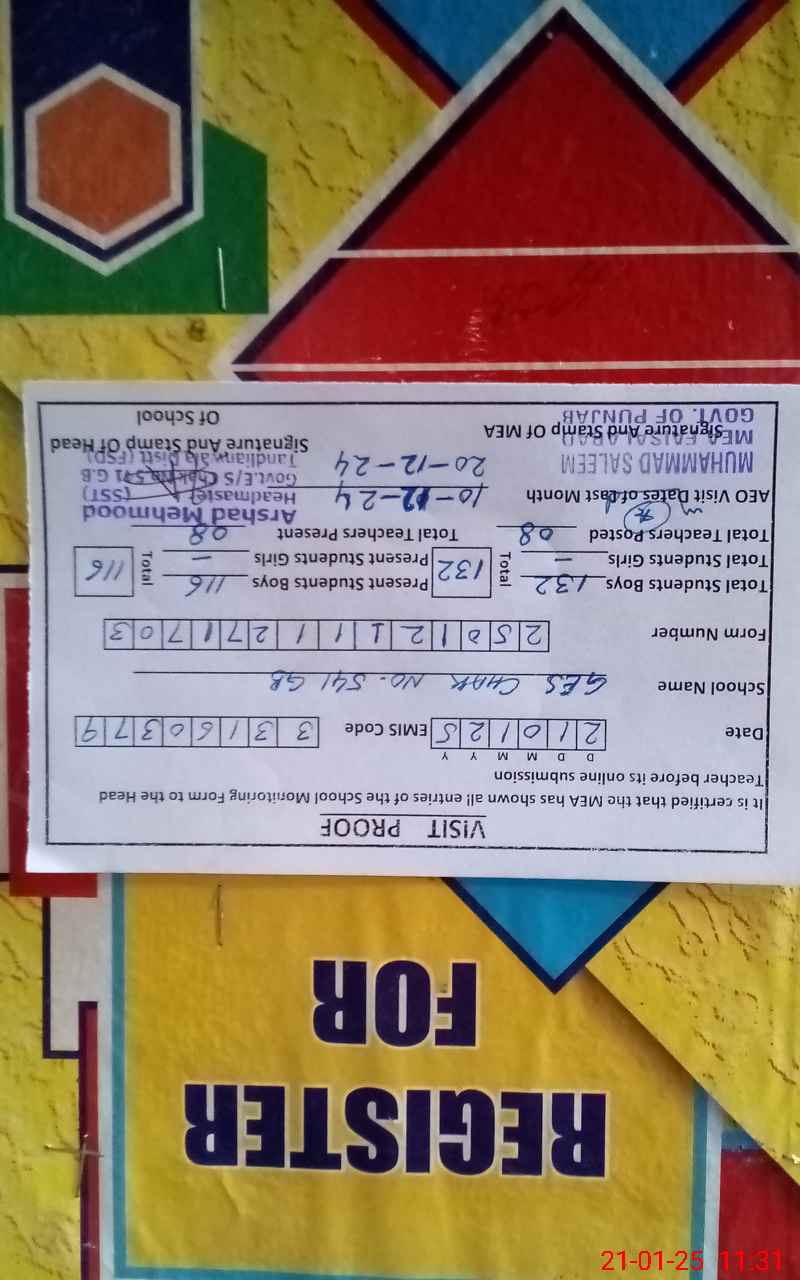 REGISTER
FOR
VISIT PROOF
It is certified that the MEA has shown all entries of the School Monitoring Form to the Head
Teacher before its online submission
D D M M Y Y
Date 2 1 0 1 2 5 EMIS Code 3 3 1 6 0 3 7 9
School Name GES CHAK NO. 541 GB
Form Number 2 5 0 1 2 1 1 1 1 2 7 1 7 0 3
Total Students Boys 132 Total 132 Present Students Boys 116 Total 116
Total Students Girls — Present Students Girls —
Total Teachers Posted 08 Total Teachers Present 08
AEO Visit Dates of Last Month 10-12-24
20-12-24
Arshad Mehmood
Headmaster (SST)
Govt.E/S Chak G.B
Tandlianwala Distt (FSD)
MUHAMMAD SALEEM
MEA FAISALABAD
GOVT. OF PUNJAB
Signature And Stamp Of MEA Signature And Stamp Of Head
Of School
21-01-25 11:31